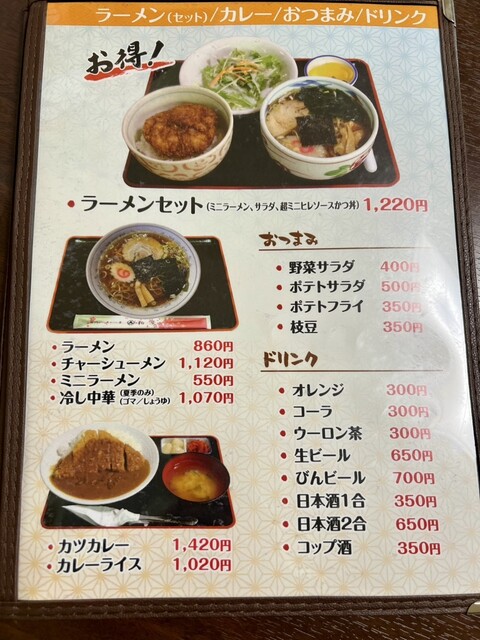 ラーメン(セット)/カレー/おつまみ/ドリンク
お得!
・ラーメンセット(ミニラーメン、サラダ、超ミニヒレソースかつ丼) 1,220円
・ラーメン 860円
・チャーシューメン 1,120円
・ミニラーメン 550円
・冷し中華(夏季のみ)(ゴマ/しょうゆ) 1,070円
・カツカレー 1,420円
・カレーライス 1,020円
おつまみ
・野菜サラダ 400円
・ポテトサラダ 500円
・ポテトフライ 350円
・枝豆 350円
ドリンク
・オレンジ 300円
・コーラ 300円
・ウーロン茶 300円
・生ビール 650円
・びんビール 700円
・日本酒1合 350円
・日本酒2合 650円
・コップ酒 350円